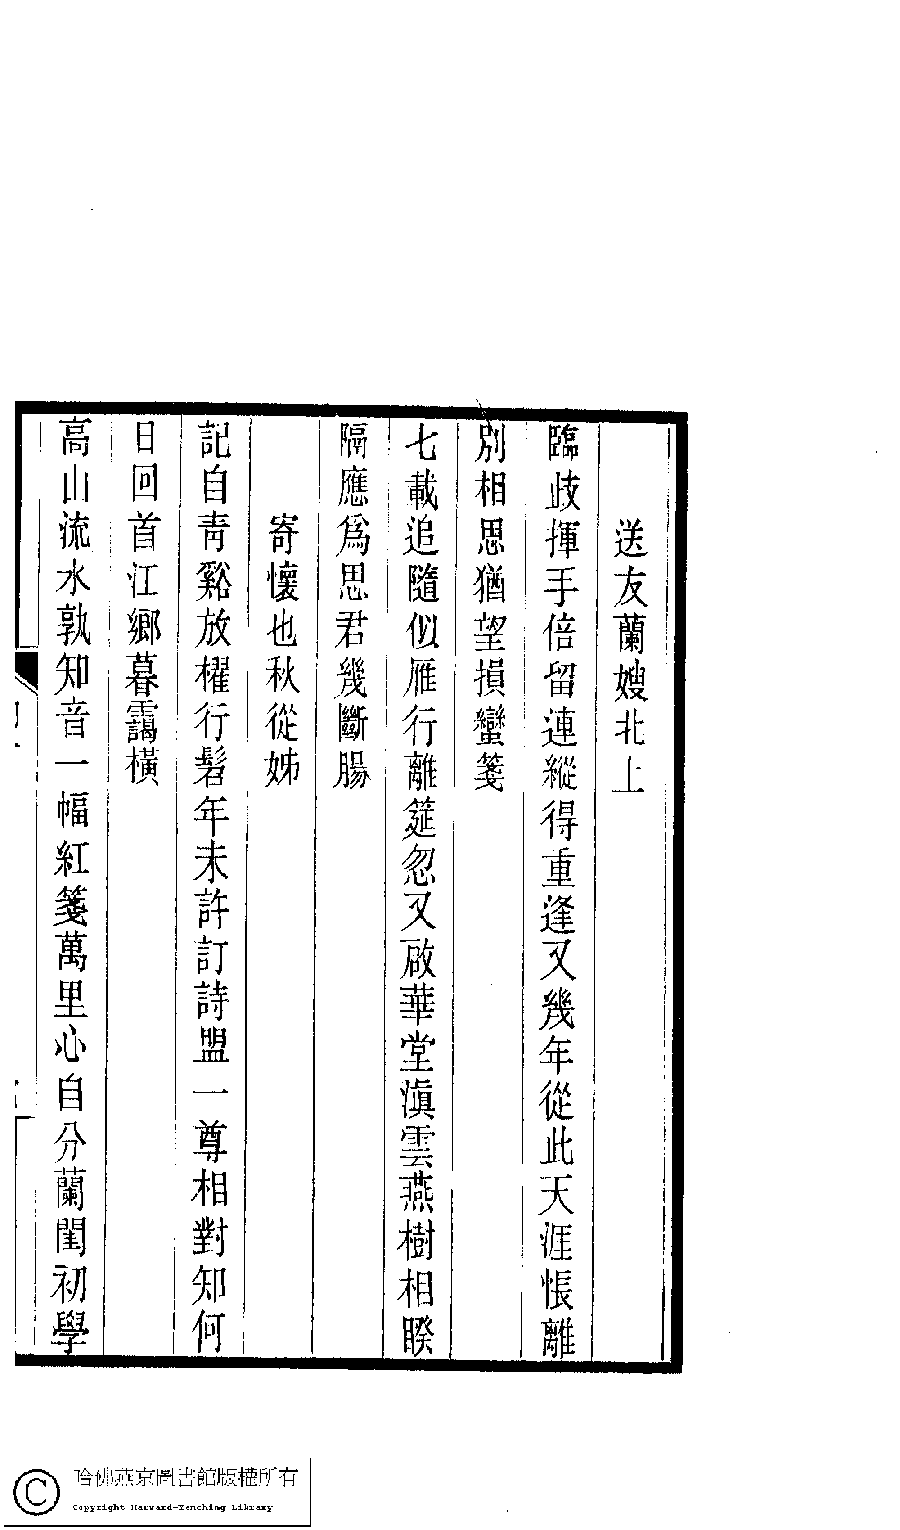 送友蘭嫂北上
臨歧揮手倍留連縱得重逢又幾年從此天涯悵離
別相思猶望損蠻箋
七載追隨似雁行離筵忽又啟華堂滇雲燕樹相睽
隔應爲思君幾斷腸
寄懷也秋從姊
記自青谿放櫂行髫年未許訂詩盟一尊相對知何
日回首江鄉暮靄橫
高山流水孰知音一幅紅箋萬里心自分蘭閨初學
哈佛燕京圖書館版權所有
Copyright Harvard-Yenching Library